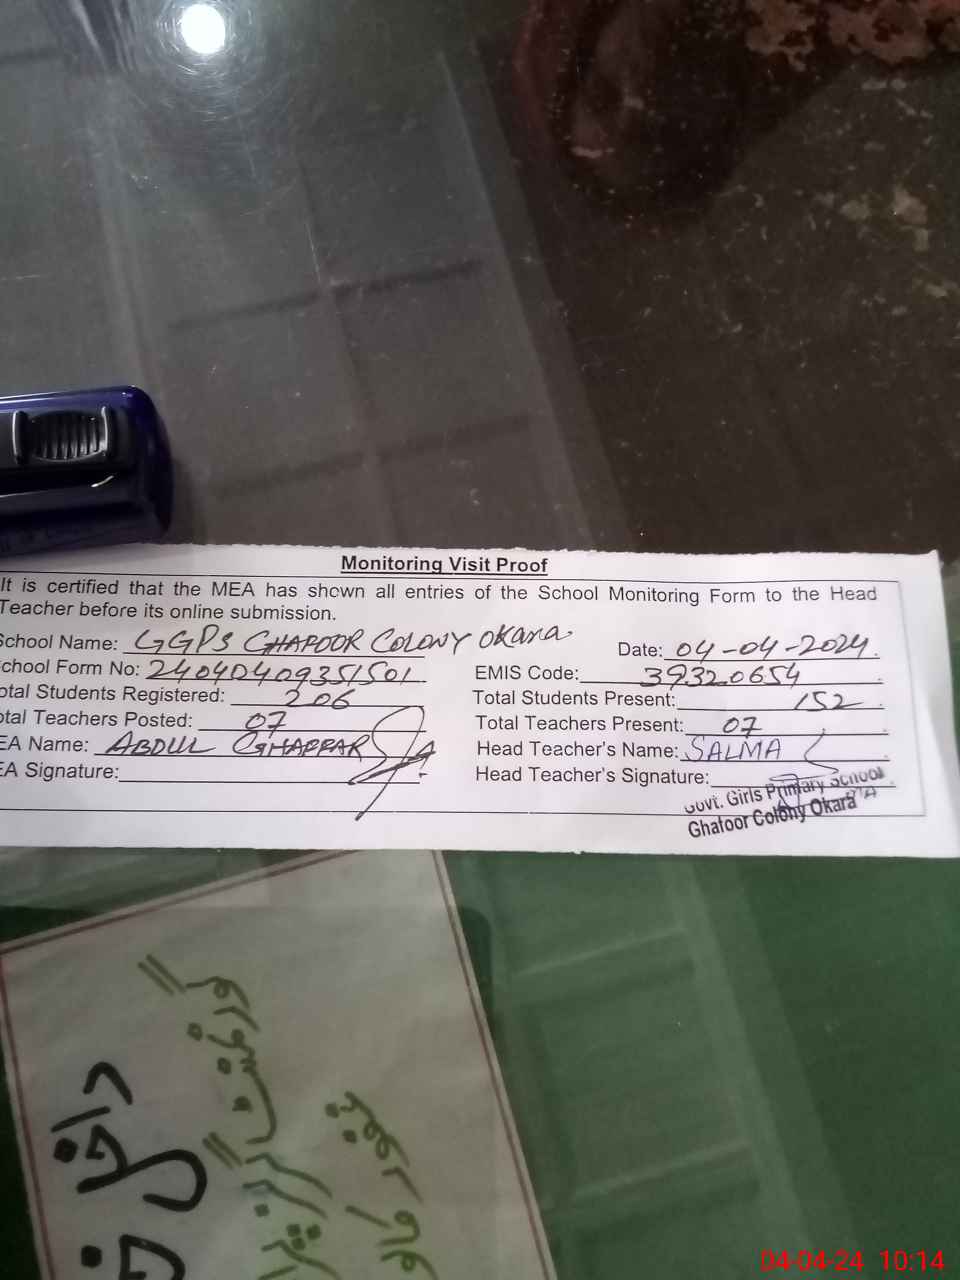 Monitoring Visit Proof
It is certified that the MEA has shown all entries of the School Monitoring Form to the Head
Teacher before its online submission.
School Name: GGPS GHAFOOR COLONY Okara Date: 04-04-2024
School Form No: 24040409351501 EMIS Code: 39320654
otal Students Registered: 206 Total Students Present: 152
otal Teachers Posted: 07 Total Teachers Present: 07
EA Name: ABDUL GHAFFAR Head Teacher's Name: SALMA
EA Signature: Head Teacher's Signature:
Govt. Girls Primary School
Ghafoor Colony Okara
گورنمنٹ گرلز
غفور کالو
داخل
04-04-24 10:14